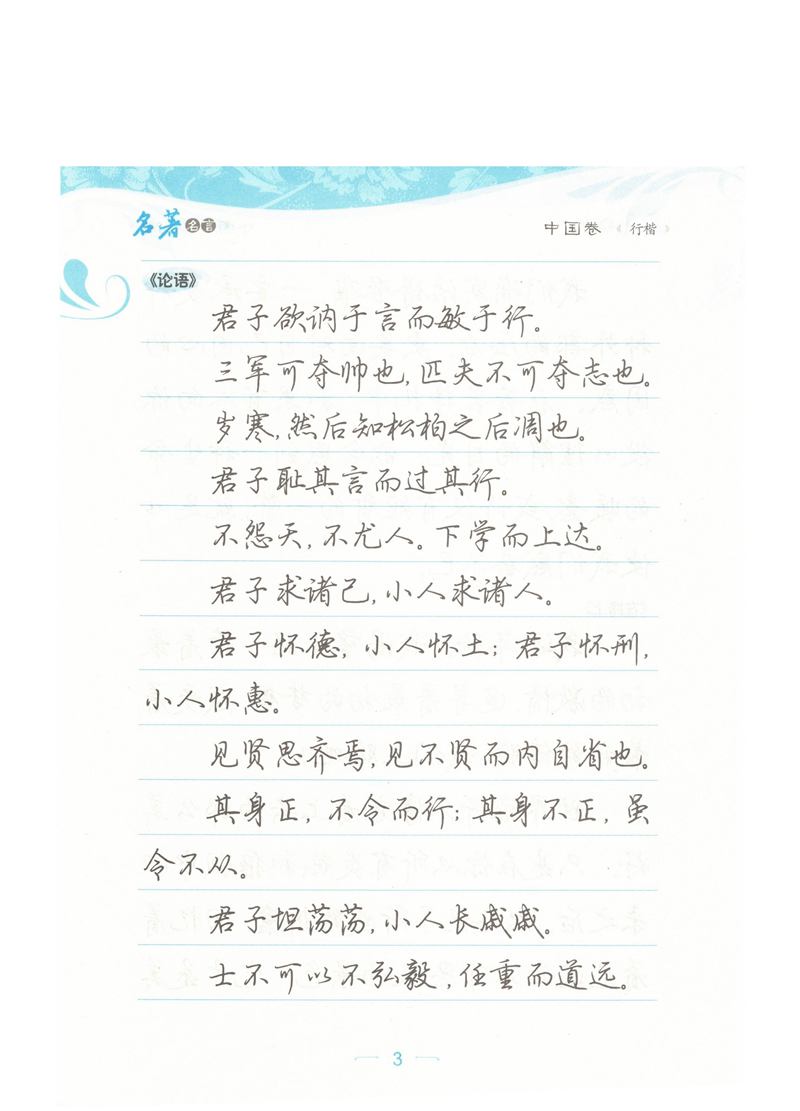 名著名言
中国卷 行楷
《论语》
君子欲讷于言而敏于行。
三军可夺帅也,匹夫不可夺志也。
岁寒,然后知松柏之后凋也。
君子耻其言而过其行。
不怨天,不尤人。下学而上达。
君子求诸己,小人求诸人。
君子怀德,小人怀土;君子怀刑,
小人怀惠。
见贤思齐焉,见不贤而内自省也。
其身正,不令而行;其身不正,虽
令不从。
君子坦荡荡,小人长戚戚。
士不可以不弘毅,任重而道远。
3